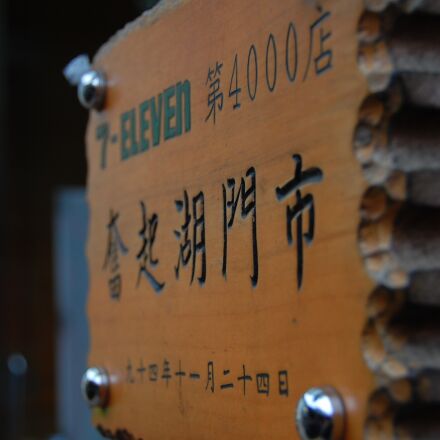 7-ELEVEn 第4000店
奮起湖門市
九十四年十一月二十四日